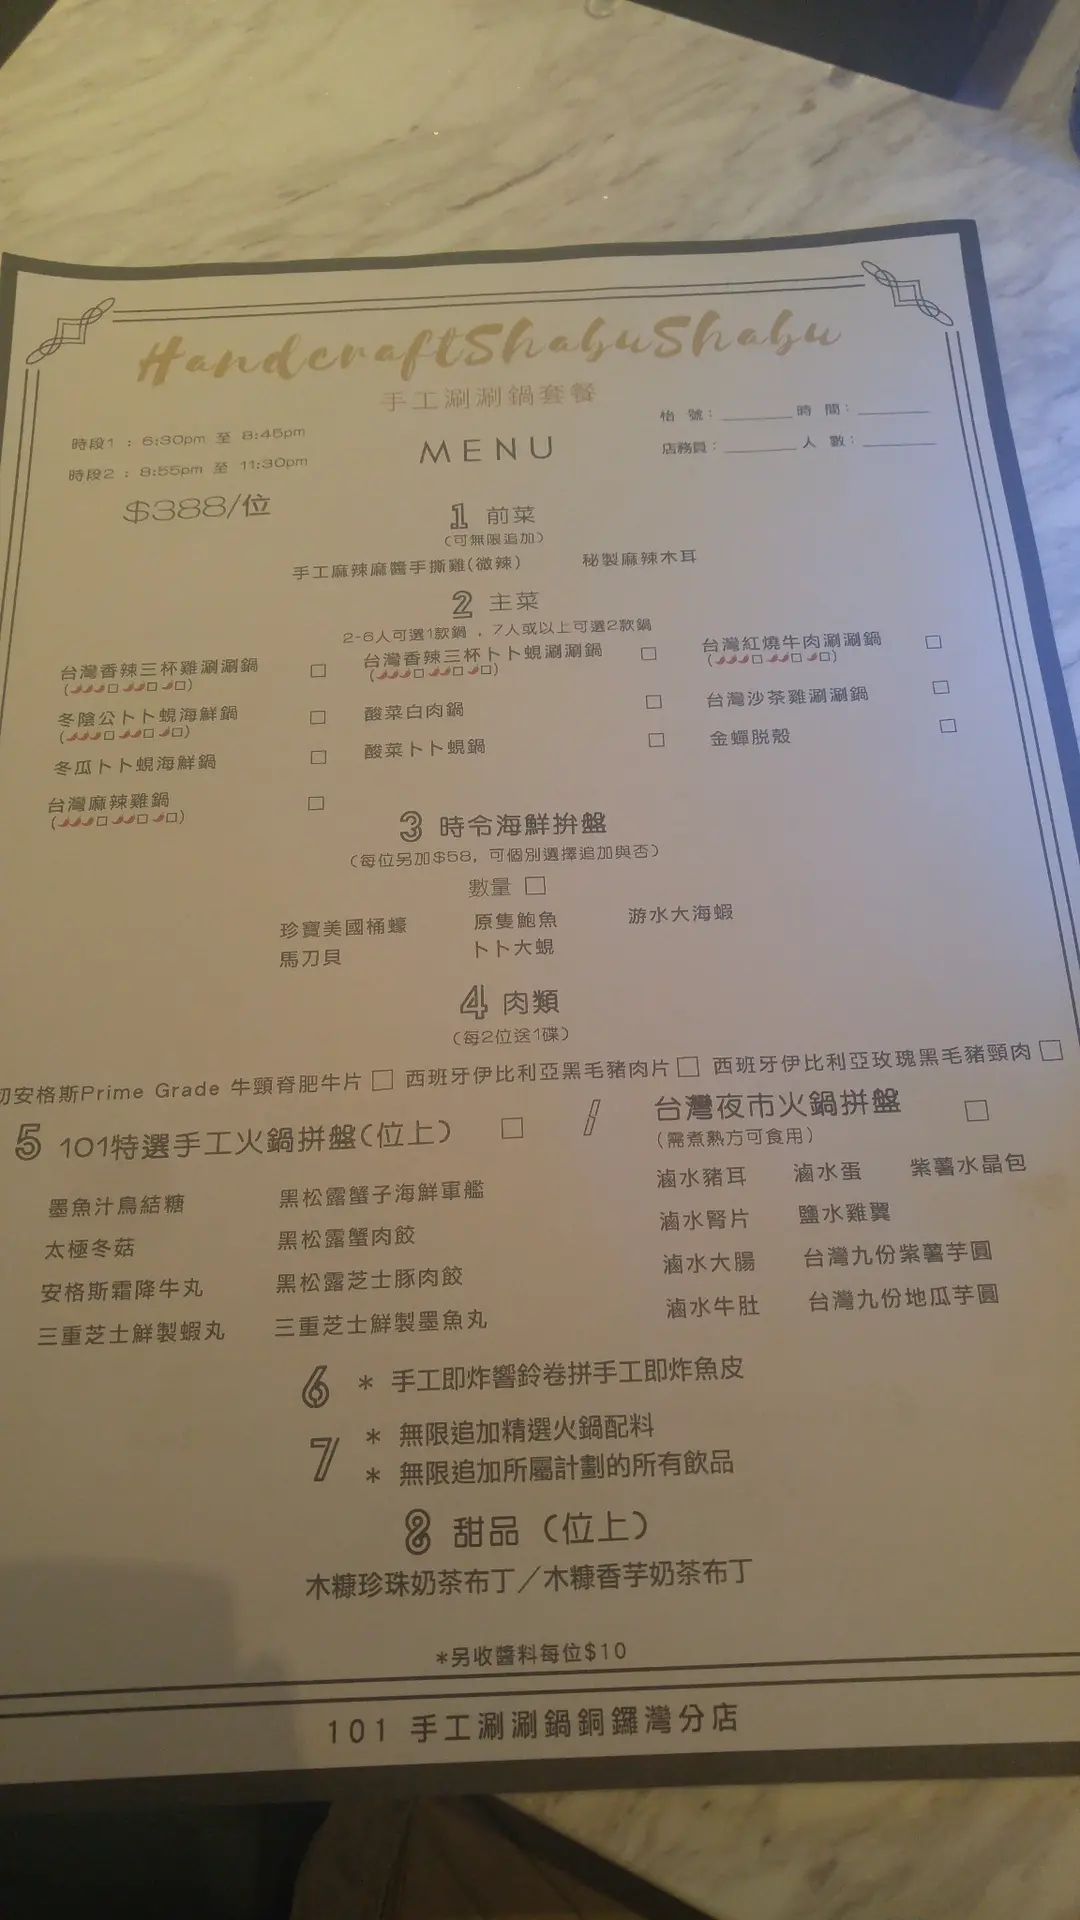 HandcraftShabuShabu
手工涮涮鍋套餐
枱 號：________ 時 間：________
時段1 ：6:30pm 至 8:45pm
MENU
店務員：________ 人 數：________
時段2 ：8:55pm 至 11:30pm
$388/位
1 前菜
(可無限追加)
手工麻辣麻醬手撕雞(微辣) 秘製麻辣木耳
2 主菜
2-6人可選1款鍋 , 7人或以上可選2款鍋
台灣香辣三杯雞涮涮鍋 □ 台灣香辣三杯卜卜蜆涮涮鍋 □ 台灣紅燒牛肉涮涮鍋 □
(🌶🌶🌶□ 🌶🌶□ 🌶□) (🌶🌶🌶□ 🌶🌶□ 🌶□) (🌶🌶🌶□ 🌶🌶□ 🌶□)
冬陰公卜卜蜆海鮮鍋 □ 酸菜白肉鍋 □ 台灣沙茶雞涮涮鍋 □
(🌶🌶🌶□ 🌶🌶□ 🌶□)
冬瓜卜卜蜆海鮮鍋 □ 酸菜卜卜蜆鍋 □ 金蟬脱殼 □
台灣麻辣雞鍋 □
(🌶🌶🌶□ 🌶🌶□ 🌶□)
3 時令海鮮拚盤
(每位另加$58, 可個別選擇追加與否)
數量 □
珍寶美國桶蠔 原隻鮑魚 游水大海蝦
馬刀貝 卜卜大蜆
4 肉類
(每2位送1碟)
切安格斯Prime Grade 牛頸脊肥牛片 □ 西班牙伊比利亞黑毛豬肉片 □ 西班牙伊比利亞玫瑰黑毛豬頸肉 □
5 101特選手工火鍋拼盤(位上) □ / 台灣夜市火鍋拼盤 □
(需煮熟方可食用)
墨魚汁鳥結糖 黑松露蟹子海鮮軍艦 滷水豬耳 滷水蛋 紫薯水晶包
太極冬菇 黑松露蟹肉餃 滷水腎片 鹽水雞翼
安格斯霜降牛丸 黑松露芝士豚肉餃 滷水大腸 台灣九份紫薯芋圓
三重芝士鮮製蝦丸 三重芝士鮮製墨魚丸 滷水牛肚 台灣九份地瓜芋圓
6 * 手工即炸響鈴卷拼手工即炸魚皮
7 * 無限追加精選火鍋配料
* 無限追加所屬計劃的所有飲品
8 甜品（位上）
木糠珍珠奶茶布丁／木糠香芋奶茶布丁
*另收醬料每位$10
101 手工涮涮鍋銅鑼灣分店